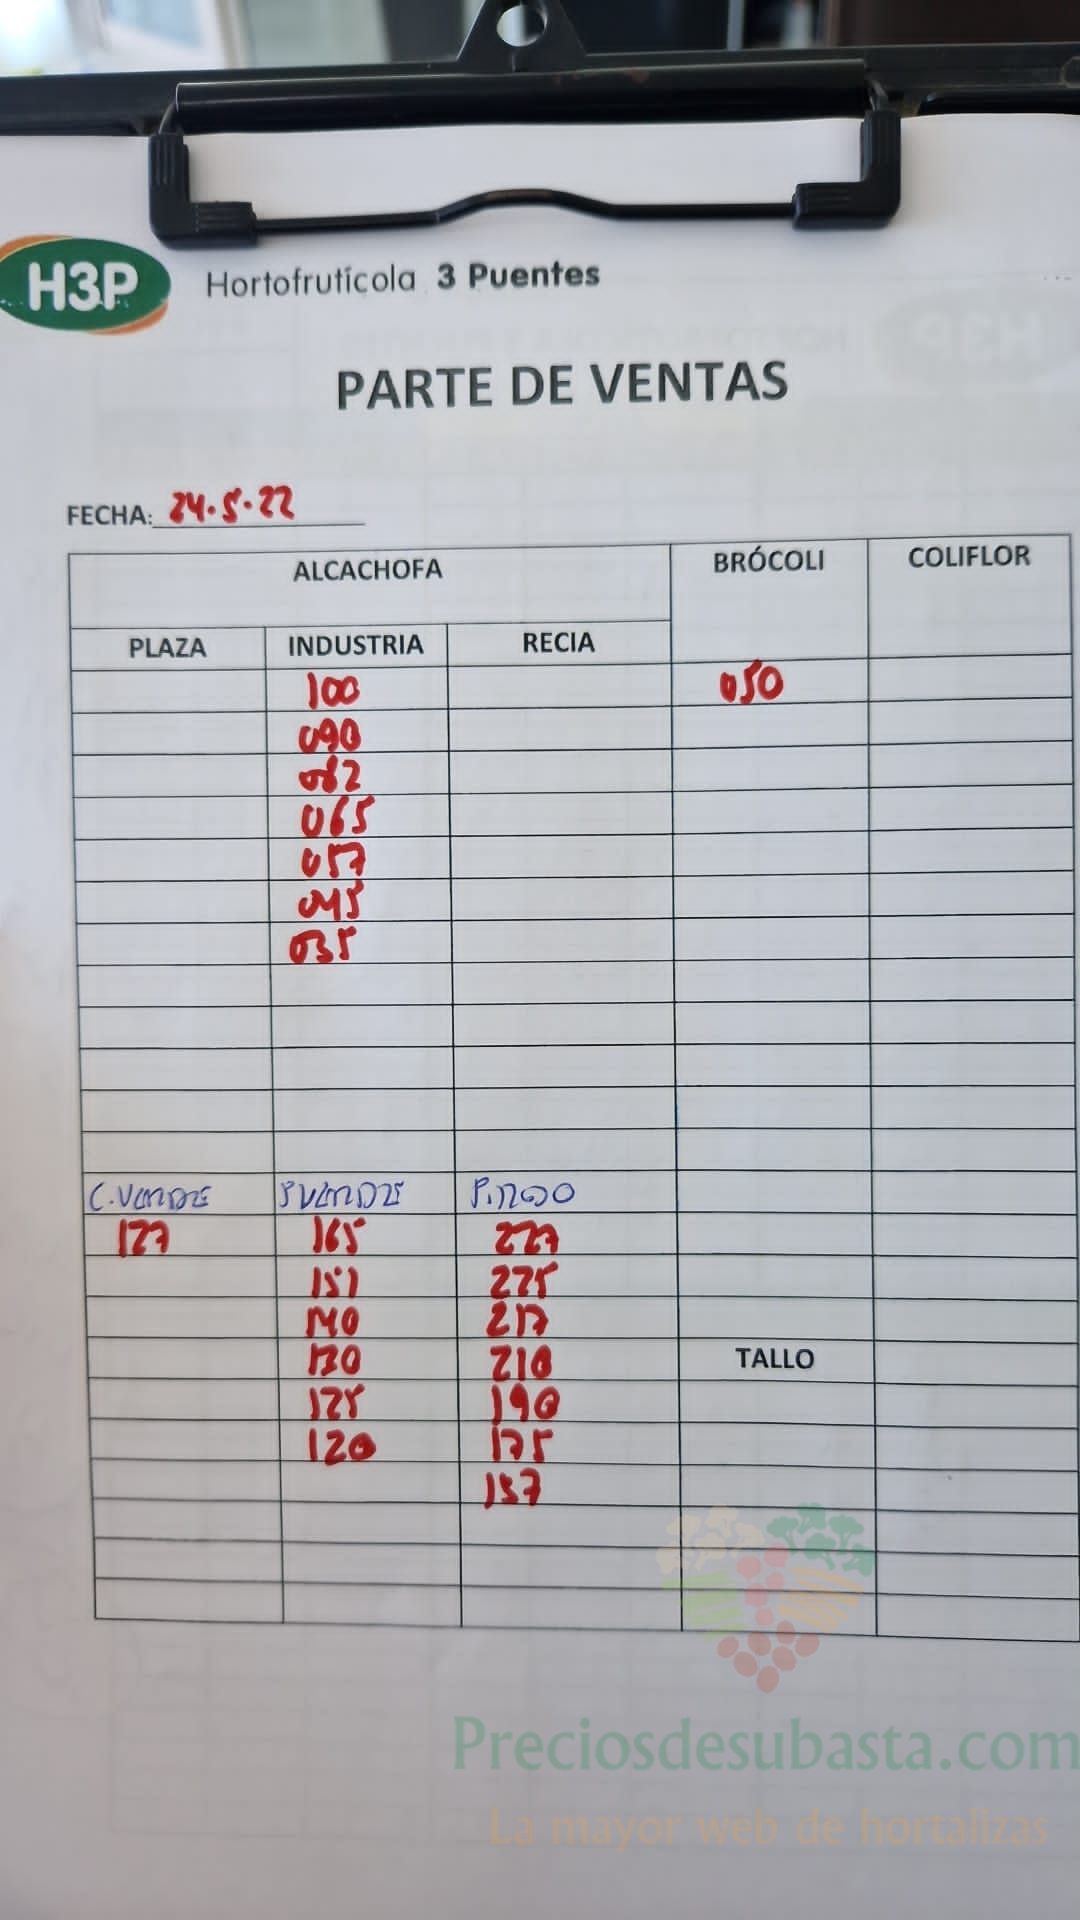 H3P Hortofrutícola 3 Puentes
PARTE DE VENTAS
FECHA: 24.5.22
ALCACHOFA BRÓCOLI COLIFLOR
PLAZA INDUSTRIA RECIA
100 050
090
062
065
057
045
035
C.VERDE P.VERDE P.ROJO
127 165 227
151 225
140 217
130 210
TALLO
125 190
120 175
157
Preciosdesubasta.com
La mayor web de hortalizas